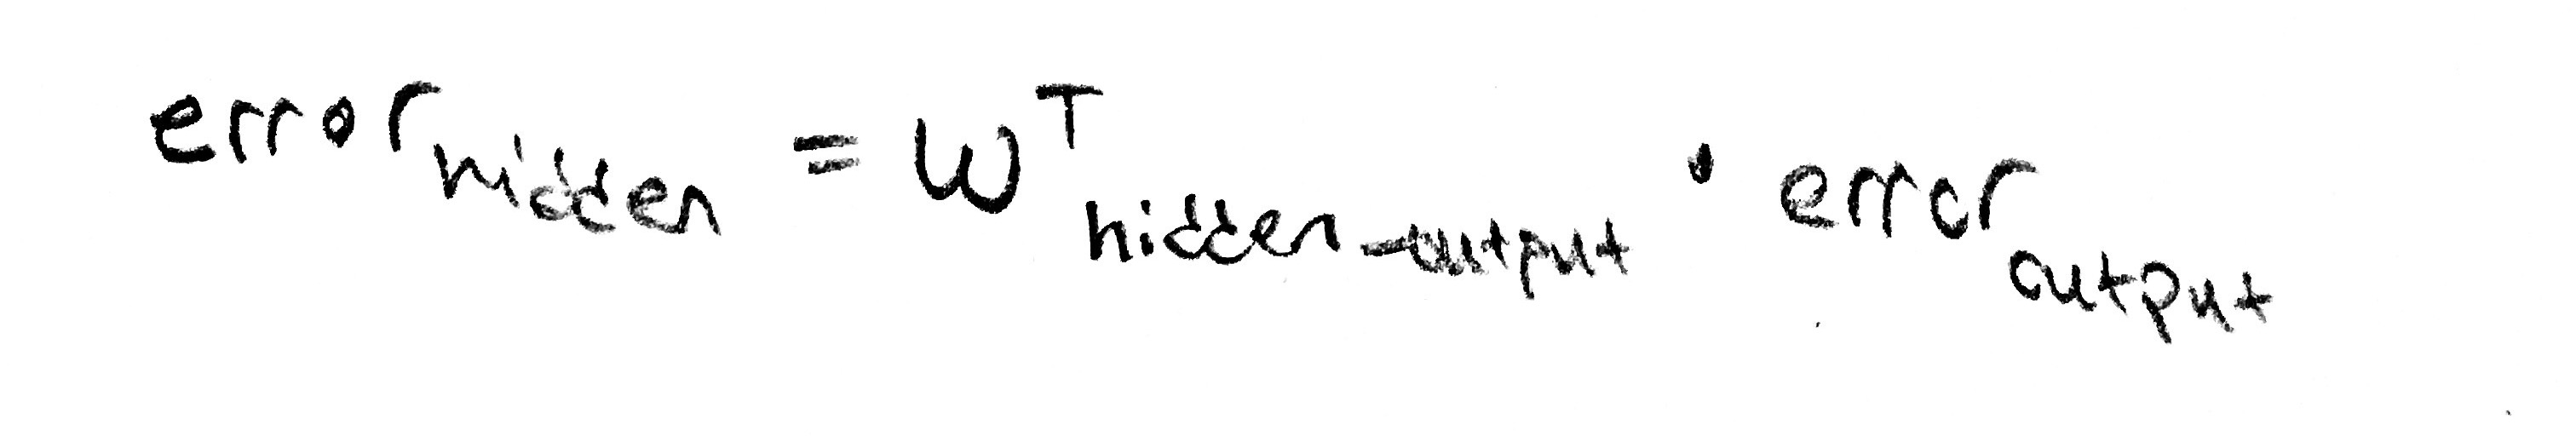 error hidden = W^T hidden-output · error output